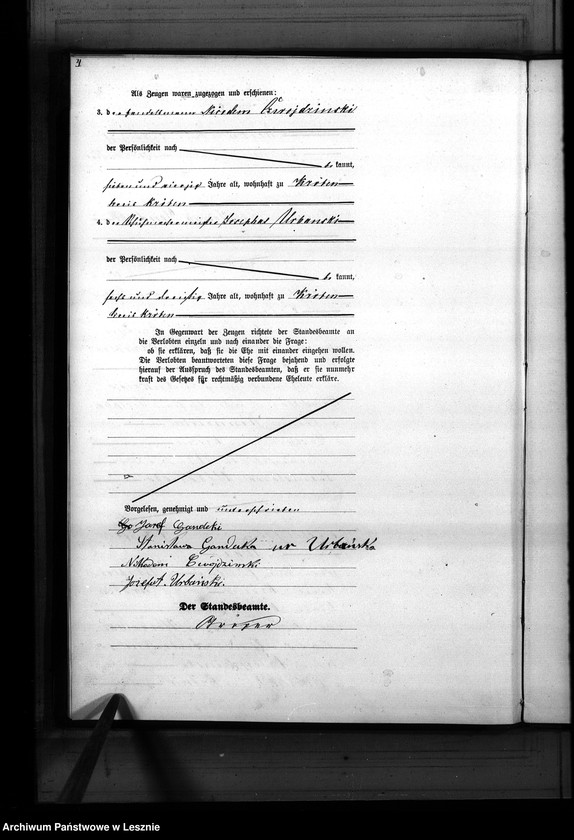 Als Zeugen waren zugezogen und erschienen:
3. der Handelsmann Nicodem Cwojdzinski
der Persönlichkeit nach
be kannt,
sieben und vierzig Jahre alt, wohnhaft zu Kröben
bezw. Kröben
4. der Schuhmachermeister Josephat Urbanski
der Persönlichkeit nach
be kannt,
sechs und dreißig Jahre alt, wohnhaft zu Kröben
Kröben
In Gegenwart der Zeugen richtete der Standesbeamte an
die Verlobten einzeln und nach einander die Frage:
ob sie erklären, daß sie die Ehe mit einander eingehen wollen.
Die Verlobten beantworteten diese Frage bejahend und erfolgte
hierauf der Ausspruch des Standesbeamten, daß er sie nunmehr
kraft des Gesetzes für rechtmäßig verbundene Eheleute erkläre.
Vorgelesen, genehmigt und unterschrieben
Józef Gandecki
Stanisława Gandecka ur Urbańska
Nikodem Cwojdzinski
Jozefat Urbański.
Der Standesbeamte.
Archiwum Państwowe w Lesznie